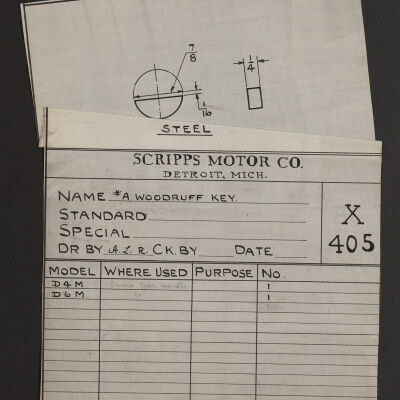 7/8
1/4
1/16
STEEL
SCRIPPS MOTOR CO.
DETROIT, MICH.
NAME #A WOODRUFF KEY.
STANDARD
SPECIAL
DR BY A.L.R. CK.BY DATE
X
405
MODEL WHERE USED PURPOSE NO.
D4M 1
D6M " 1